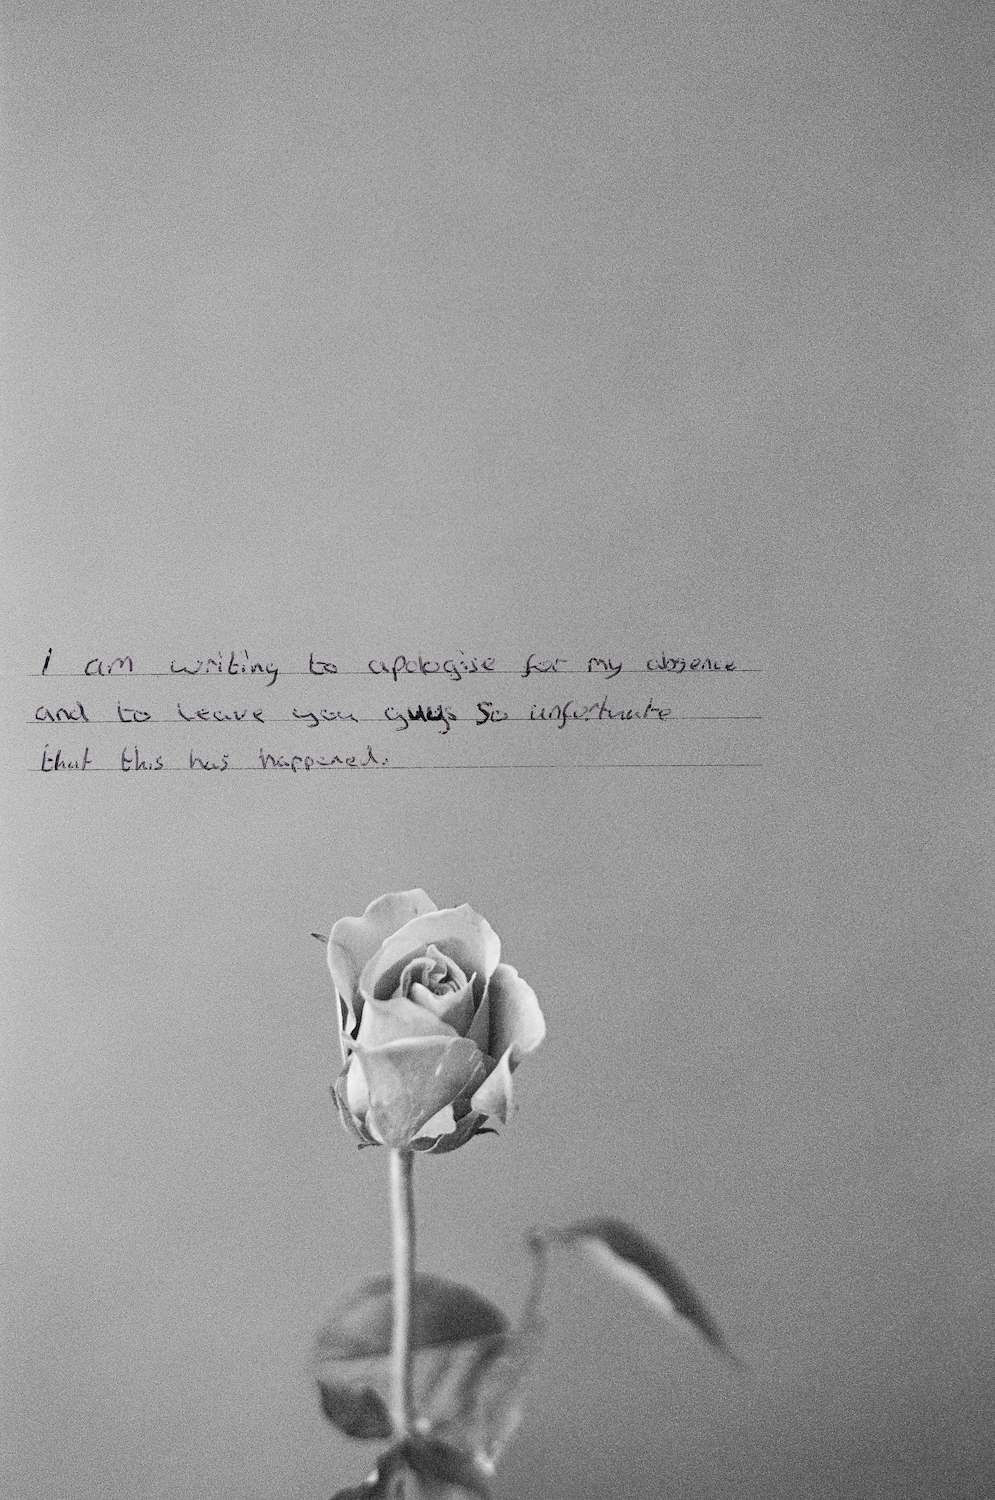 I am writing to apologise for my absence
and to leave you guys so unfortunate
that this has happened.